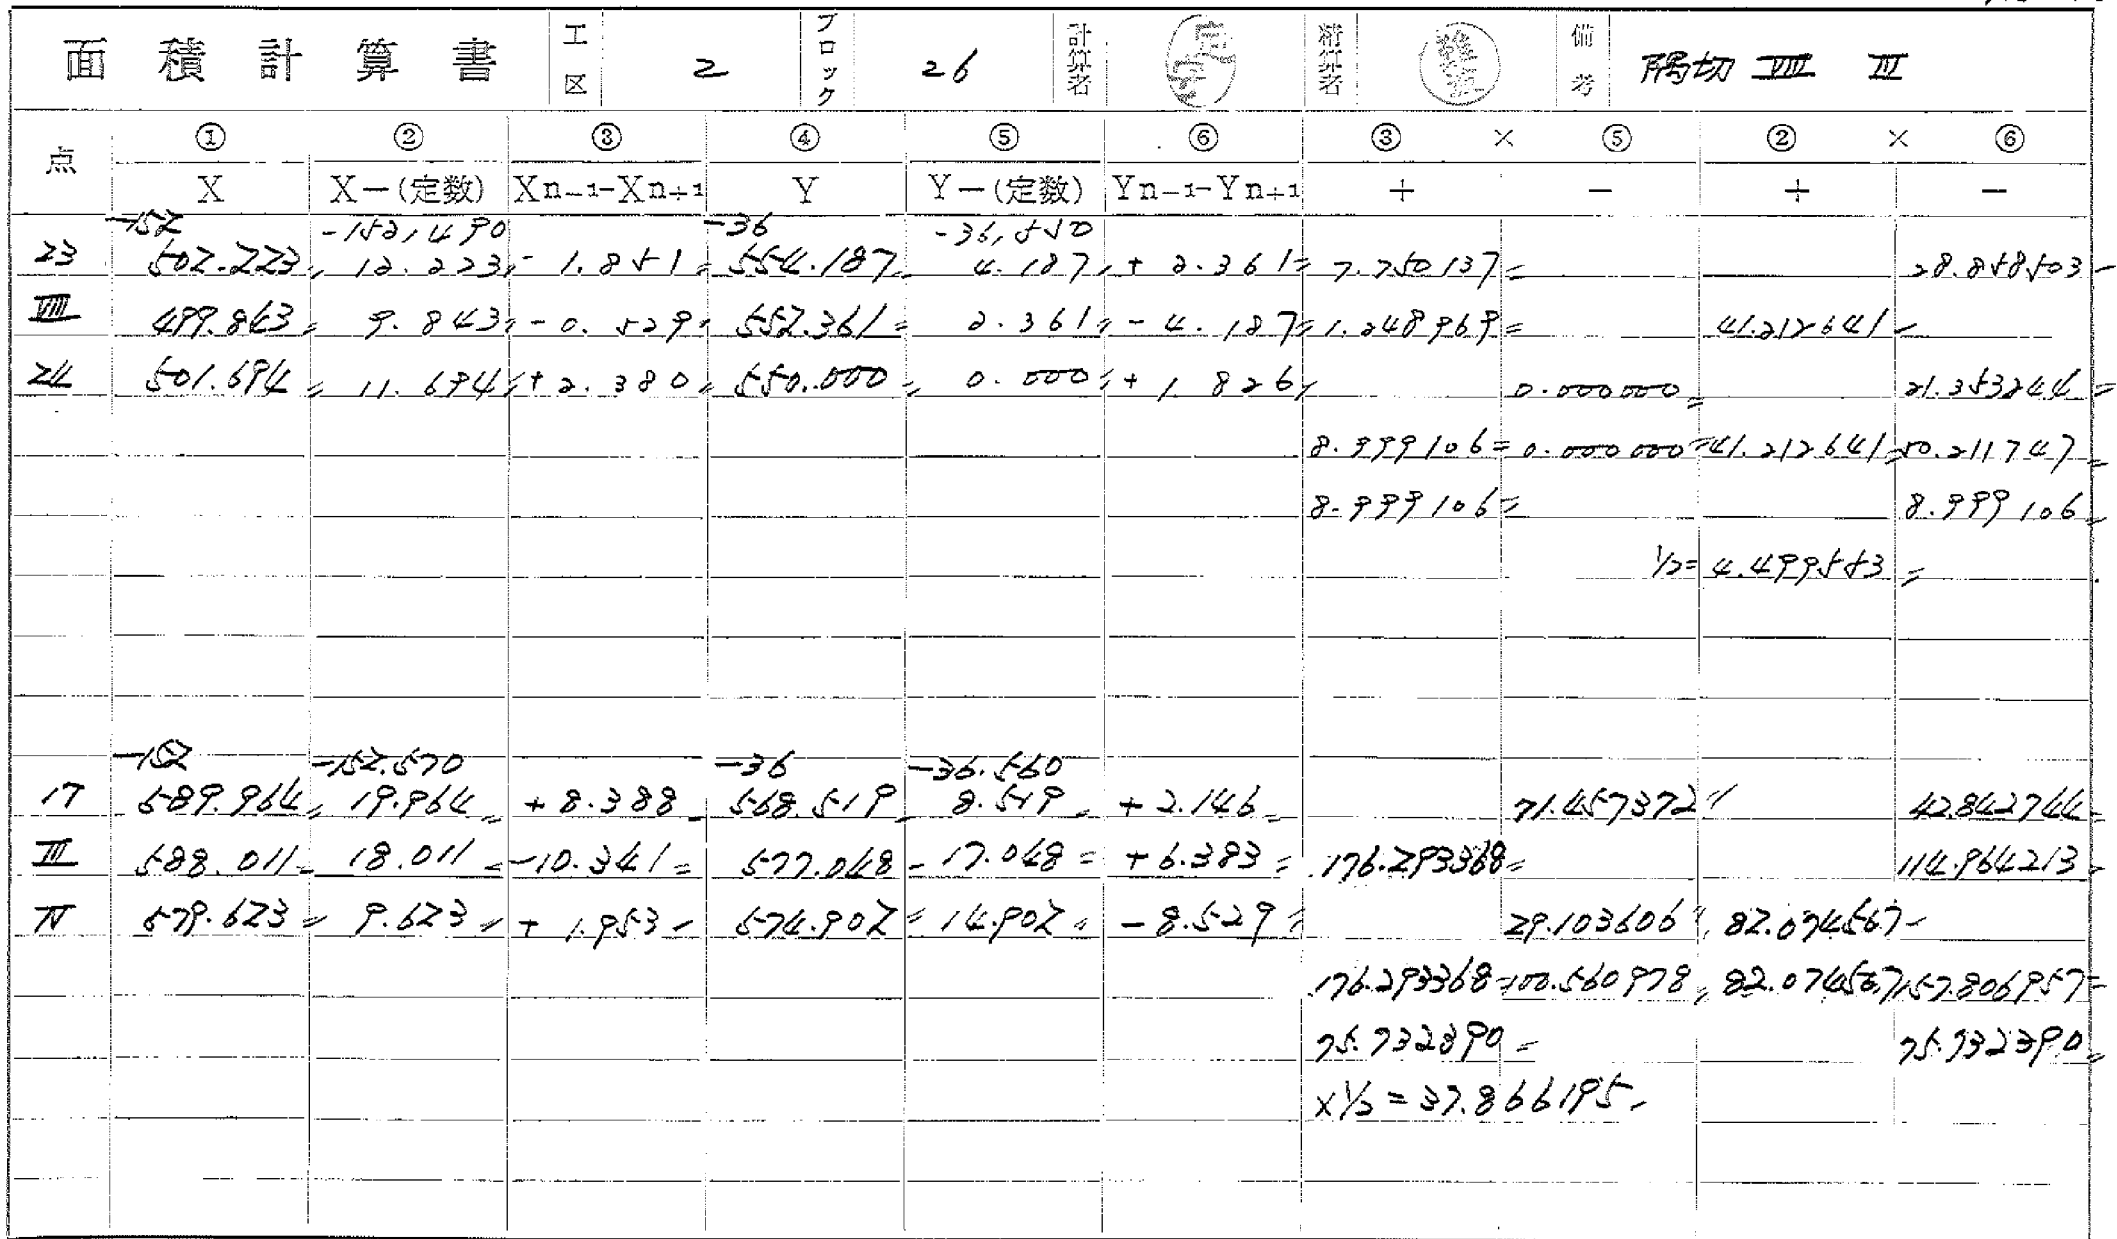 面積計算書 工区 2 ブロック 26 計算者 精算者 備考 隅切 Ⅷ Ⅲ
点 ① ② ③ ④ ⑤ ⑥ ③ × ⑤ ② × ⑥
X X-(定数) Xn-1-Xn+1 Y Y-(定数) Yn-1-Yn+1 + - + -
-152 -152,490 -36 -36,550
23 502.223 12.223 - 1.851 554.187 4.187 + 2.361 7.750137 28.858503
Ⅷ 499.843 9.843 - 0.529 552.361 2.361 - 4.187 1.248969 41.212641
24 501.694 11.694 + 2.380 550.000 0.000 + 1.826 0.000000 21.353244
8.999106 0.000000 41.212641 50.211747
8.999106 8.999106
1/2= 4.499553
-152 -152.570 -36 -36.560
17 589.964 19.964 + 8.388 568.519 8.519 + 2.146 71.457372 42.842744
Ⅲ 588.011 18.011 -10.341 577.048 17.048 + 6.383 176.293368 114.964213
Ⅳ 579.623 9.623 + 1.953 574.902 14.902 - 8.529 29.103606 82.074567
176.293368 100.560978 82.074567 157.806957
75.732390 75.732390
×1/2 = 37.866195